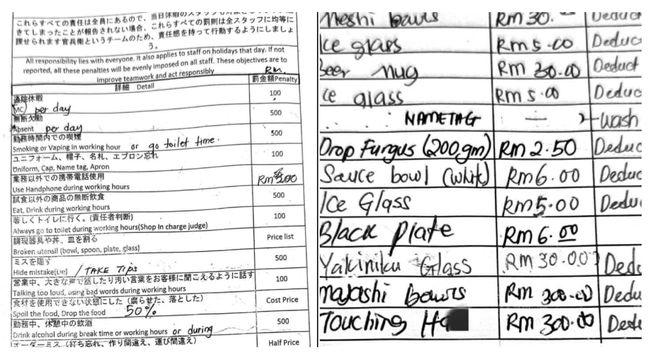 これらすべての責任は全員にあるので、当日休暇のスタッフも
きてしまったことが報告されない場合、これらすべての罰則は全スタッフに均等に
課せられます官兵衛というチームのため、責任感を持って行動するようにしましょ
う。
All responsibility lies with everyone. It also applies to staff on holidays that day. If not
reported, all these penalties will be evenly imposed on all staff. These objectives are to
improve teamwork and act responsibly
Rm.
詳細 Detail 罰金額Penalty
当日休暇 100
MC/ per day
無断欠勤 500
Absent per day
勤務時間内での喫煙 500
Smoking or Vaping in working hour or go toilet time.
ユニフォーム、帽子、名札、エプロン忘れ 100
Uniform, Cap, Name tag, Apron
業務以外での携帯電話使用
Use Handphone during working hours
試食以外の商品の無断飲食 500
Eat, Drink during working hours
著しくトイレに行く。(責任者判断) 100
Always go to toilet during working hours(Shop In charge judge)
調理器具や丼、皿を割る Price list
Broken utensil (bowl, spoon, plate, glass)
ミスを隠す 500
Hide mistake / TAKE TIPS
営業中、大きな声で話したり汚い言葉をお客様に聞こえるように話す 100
Talking too loud, using bad words during working hours
食材を使用できない状態にした(腐らせた、落とした) Cost Price
Spoil the food, Drop the food 50%
勤務中、休憩中の飲酒 500
Drink alcohol during break time or working hours or during
オーダーミス(打ち忘れ、作り間違え、運び間違え) Half Price
Meshi bowls Rm 30. Deduct
Ice glass Rm 5.00 Deduc
Beer mug Rm 30.00 Deduct
Ice glass Rm 5.00 Deduc
NAMETAG — 2 wash
Drop Fungus (200gm) Rm 2.50 Deduct
Sauce bowl (white) Rm 6.00 Deduc
Ice Glass Rm 5.00 Deduc
Black plate Rm 6.00
Yakiniku Glass Rm 30.00 Dedu
Mayashi bowls Rm 300.00 Dedu
Touching Ha Rm 300.00 Dedu